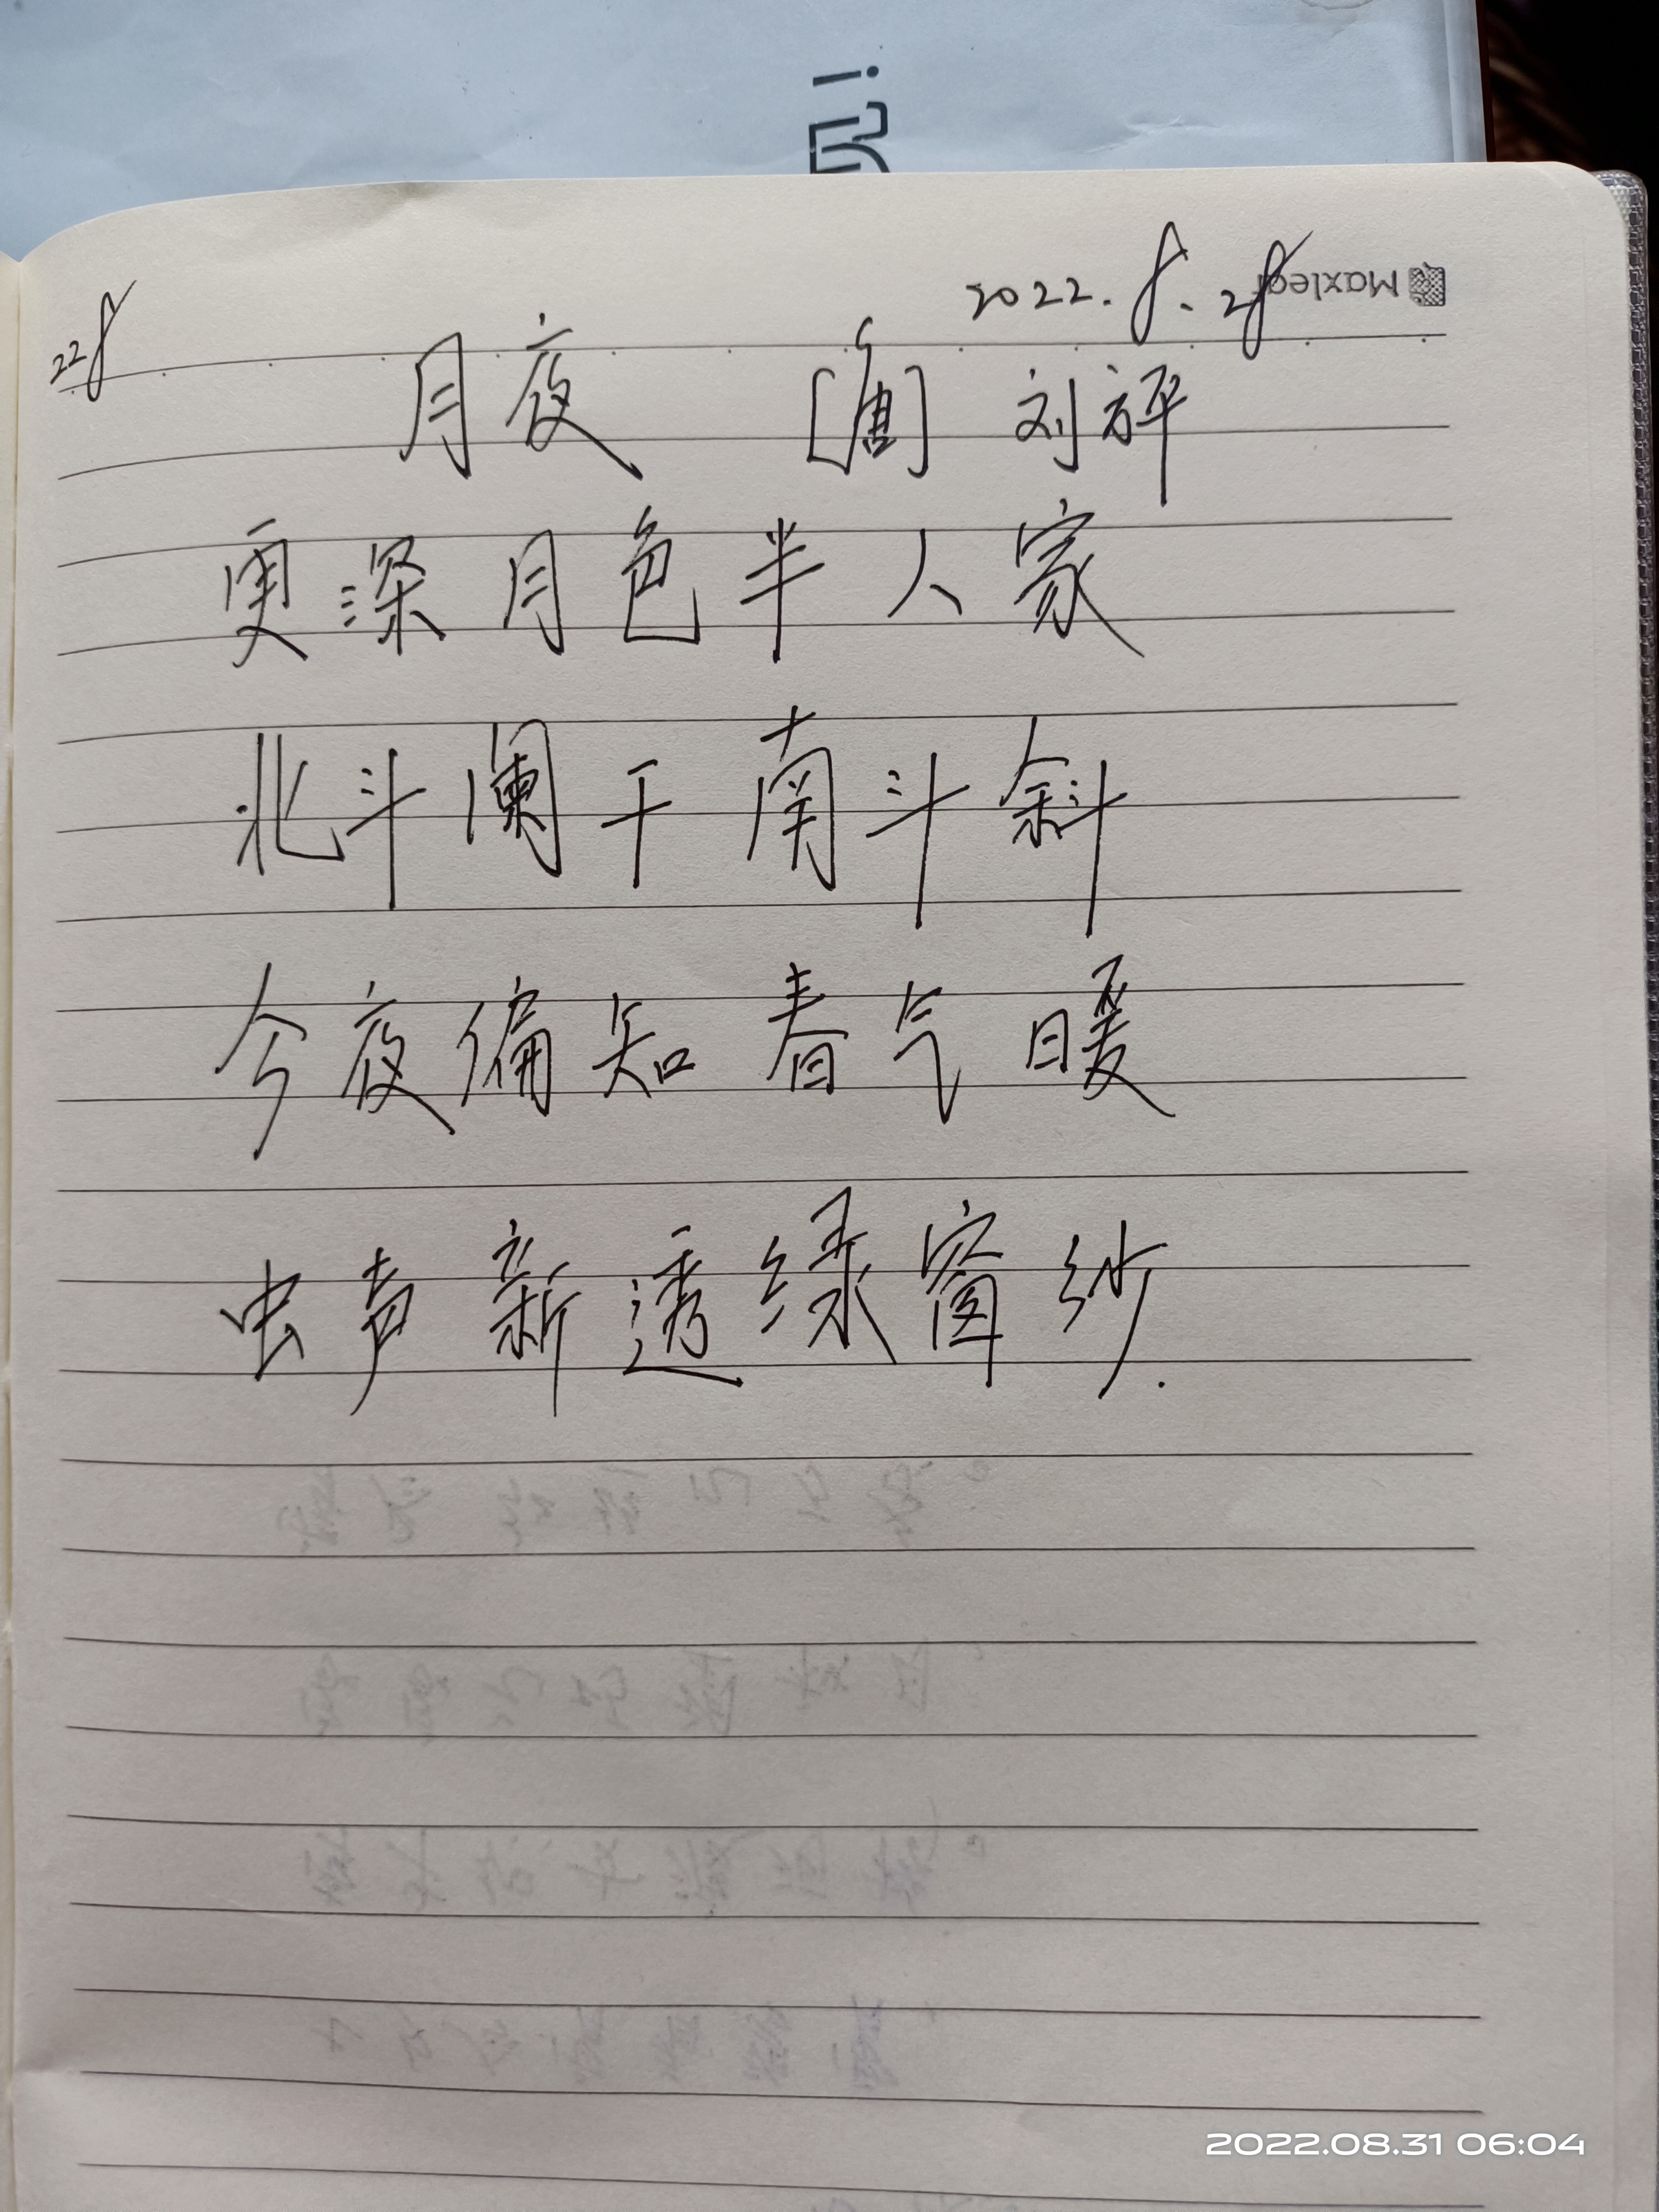 2022.8.28
Maxleaf
228
月夜 [唐] 刘方平
更深月色半人家
北斗阑干南斗斜
今夜偏知春气暖
虫声新透绿窗纱.
2022.08.31 06:04